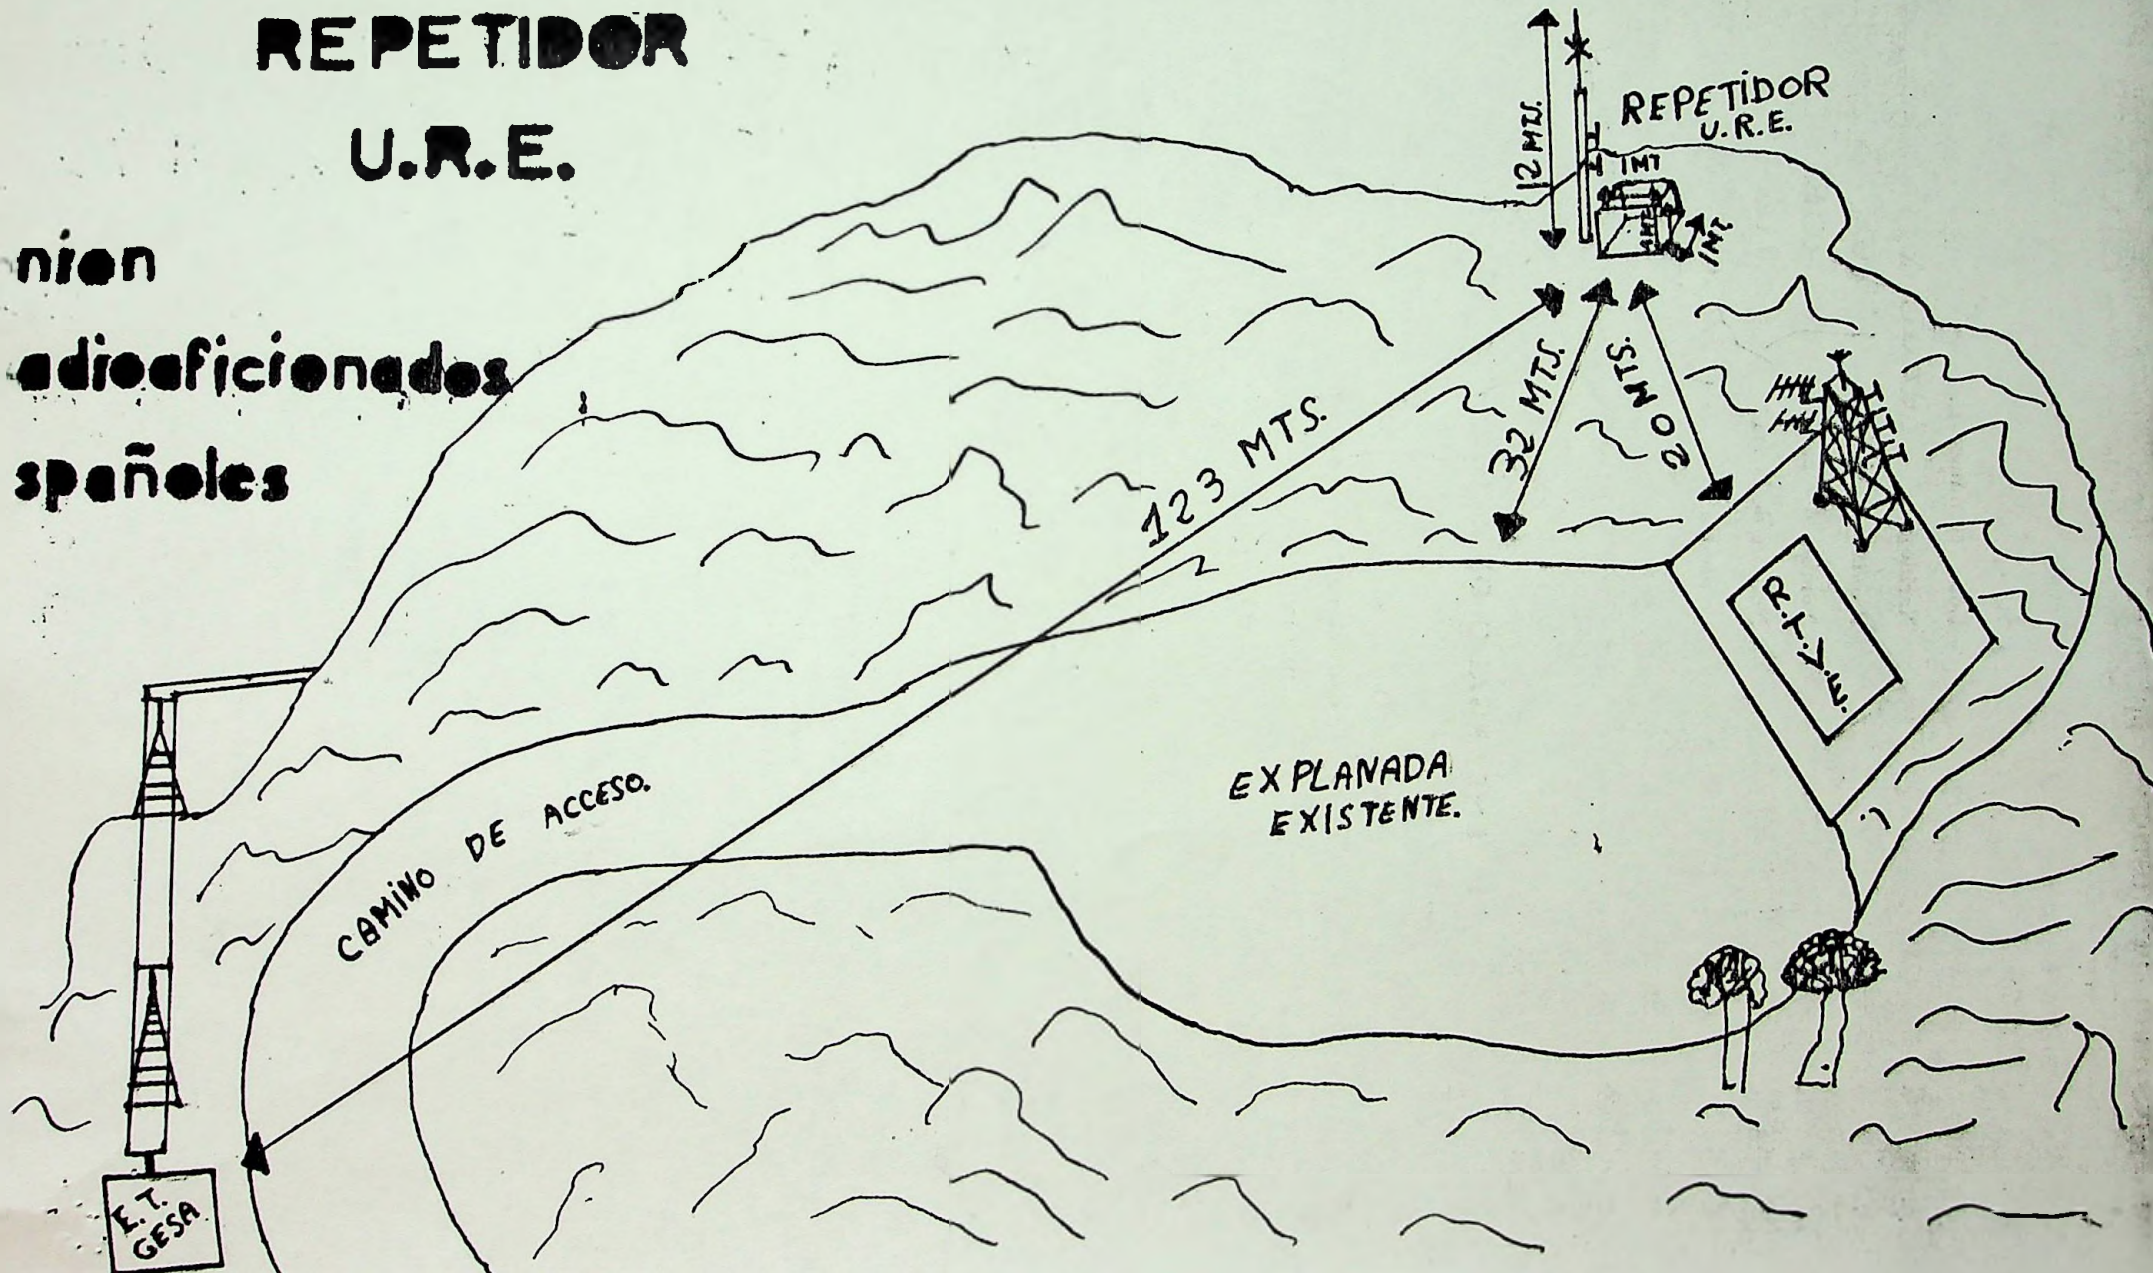 REPETIDOR
U.R.E.
nion
adioaficionados
spañoles
12 MTS.
REPETIDOR
U.R.E.
1MT
1MT
1MT
123 MTS.
32 MTS.
20 MTS.
R.T.V.E.
EXPLANADA
EXISTENTE.
CAMINO DE ACCESO.
E.T.
GESA